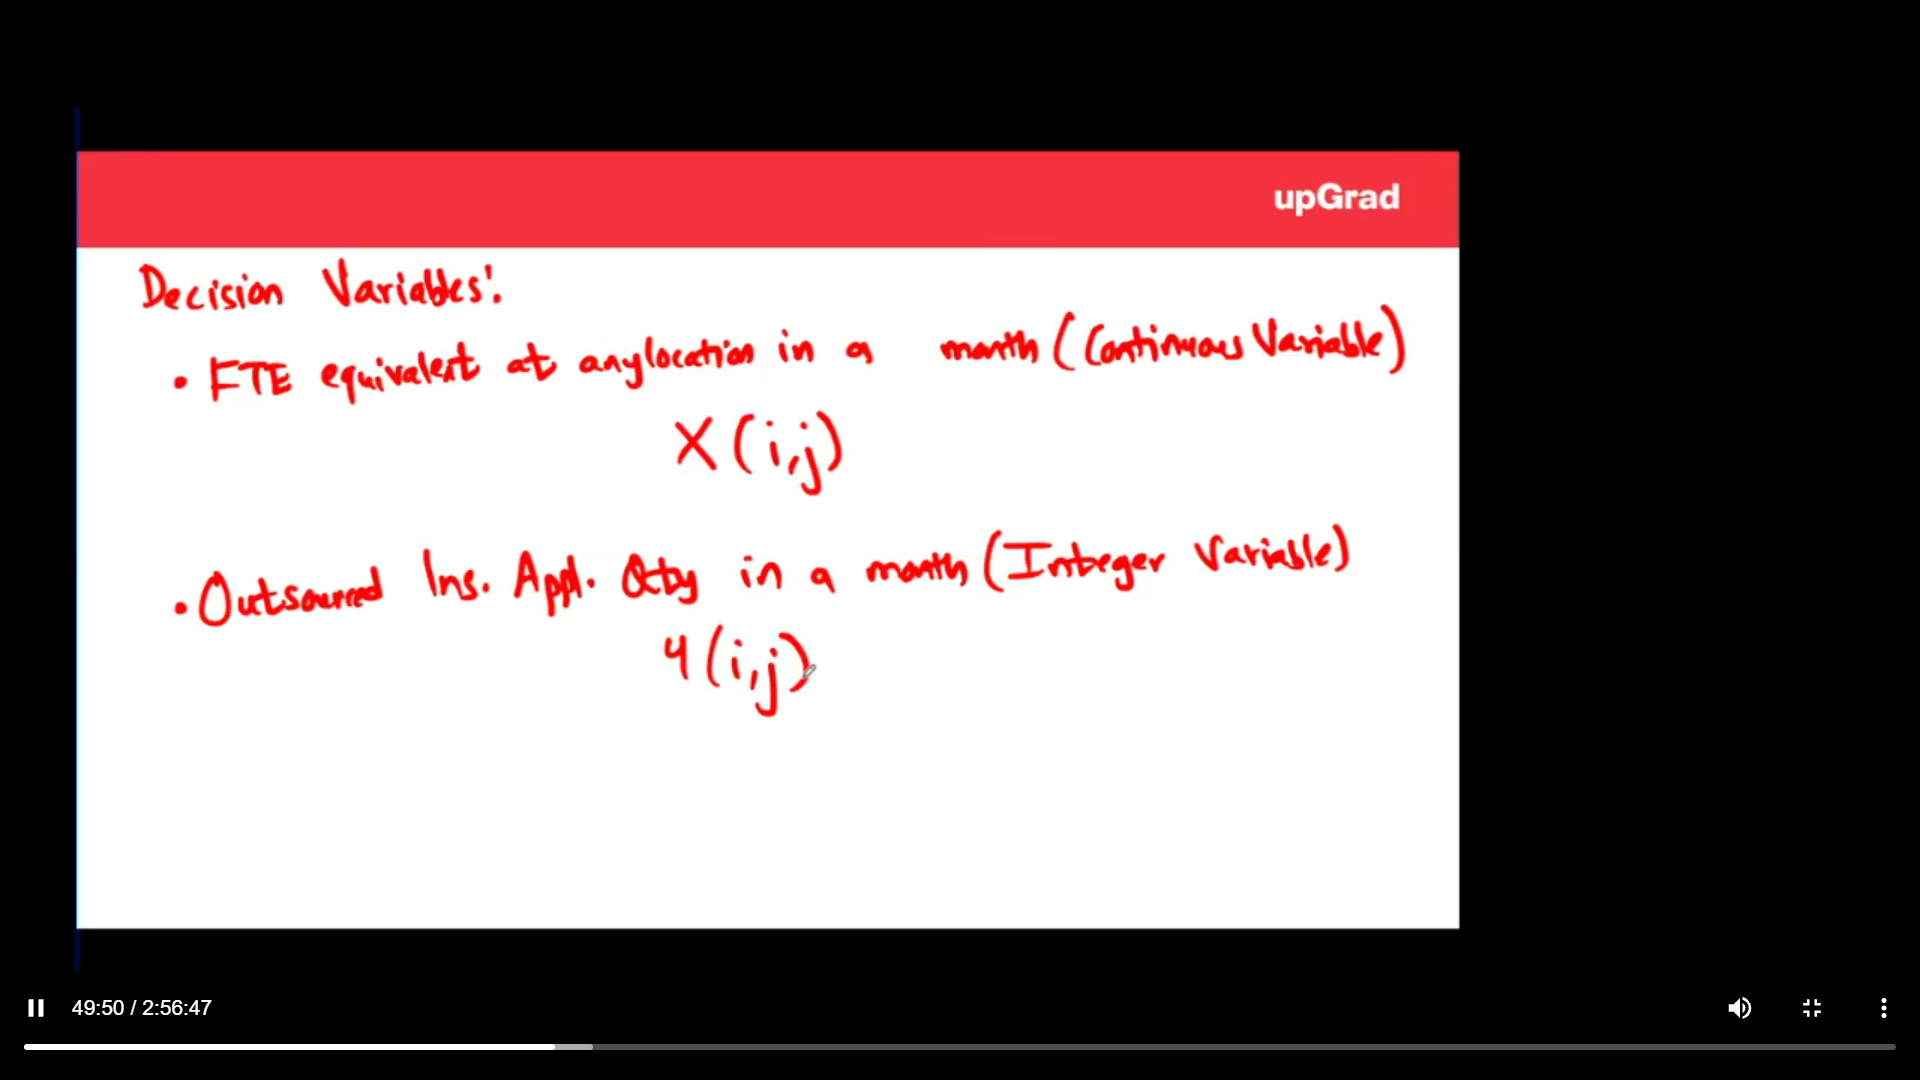 upGrad
Decision Variables:
• FTE equivalent at any location in a month (Continuous Variable)
X (i,j)
• Outsourced Ins. Appl. Qty in a month (Integer Variable)
Y (i,j)
49:50 / 2:56:47